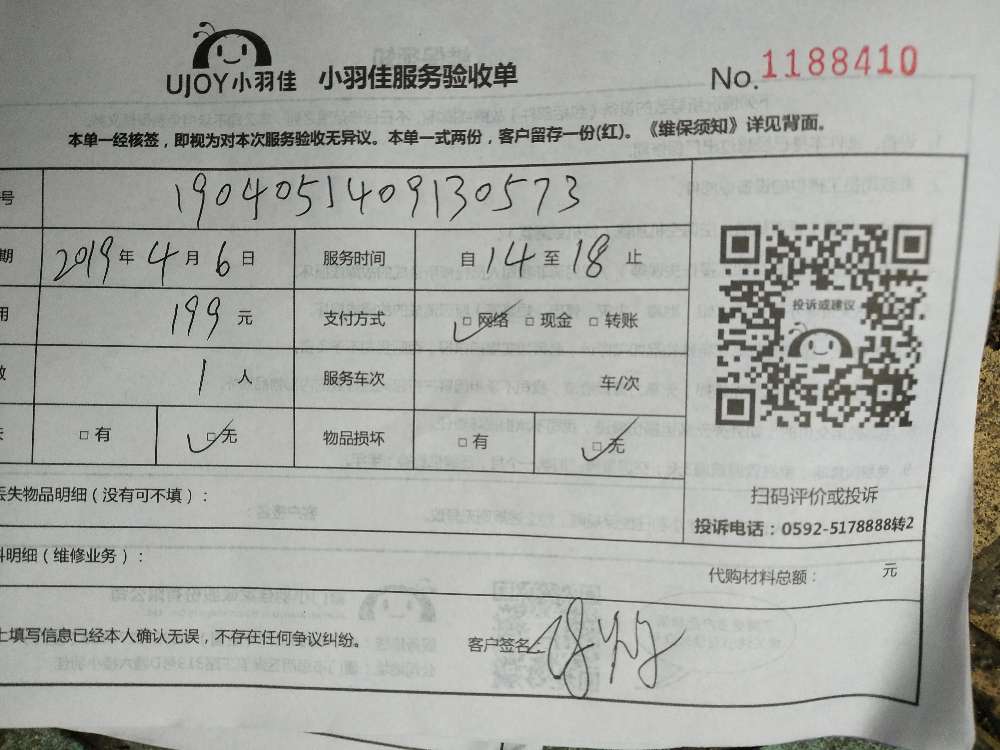 UJOY小羽佳 小羽佳服务验收单 No.1188410
本单一经核签，即视为对本次服务验收无异议。本单一式两份，客户留存一份(红)。《维保须知》详见背面。
号 1904051409130573
期 2019年4月6日 服务时间 自14至18止
用 199元 支付方式 □网络 □现金 □转账
1人 服务车次 车/次
□有 □无 物品损坏 □有 □无
投诉或建议
扫码评价或投诉
投诉电话：0592-5178888转2
丢失物品明细（没有可不填）：
料明细（维修业务）：
代购材料总额： 元
上填写信息已经本人确认无误，不存在任何争议纠纷。 客户签名